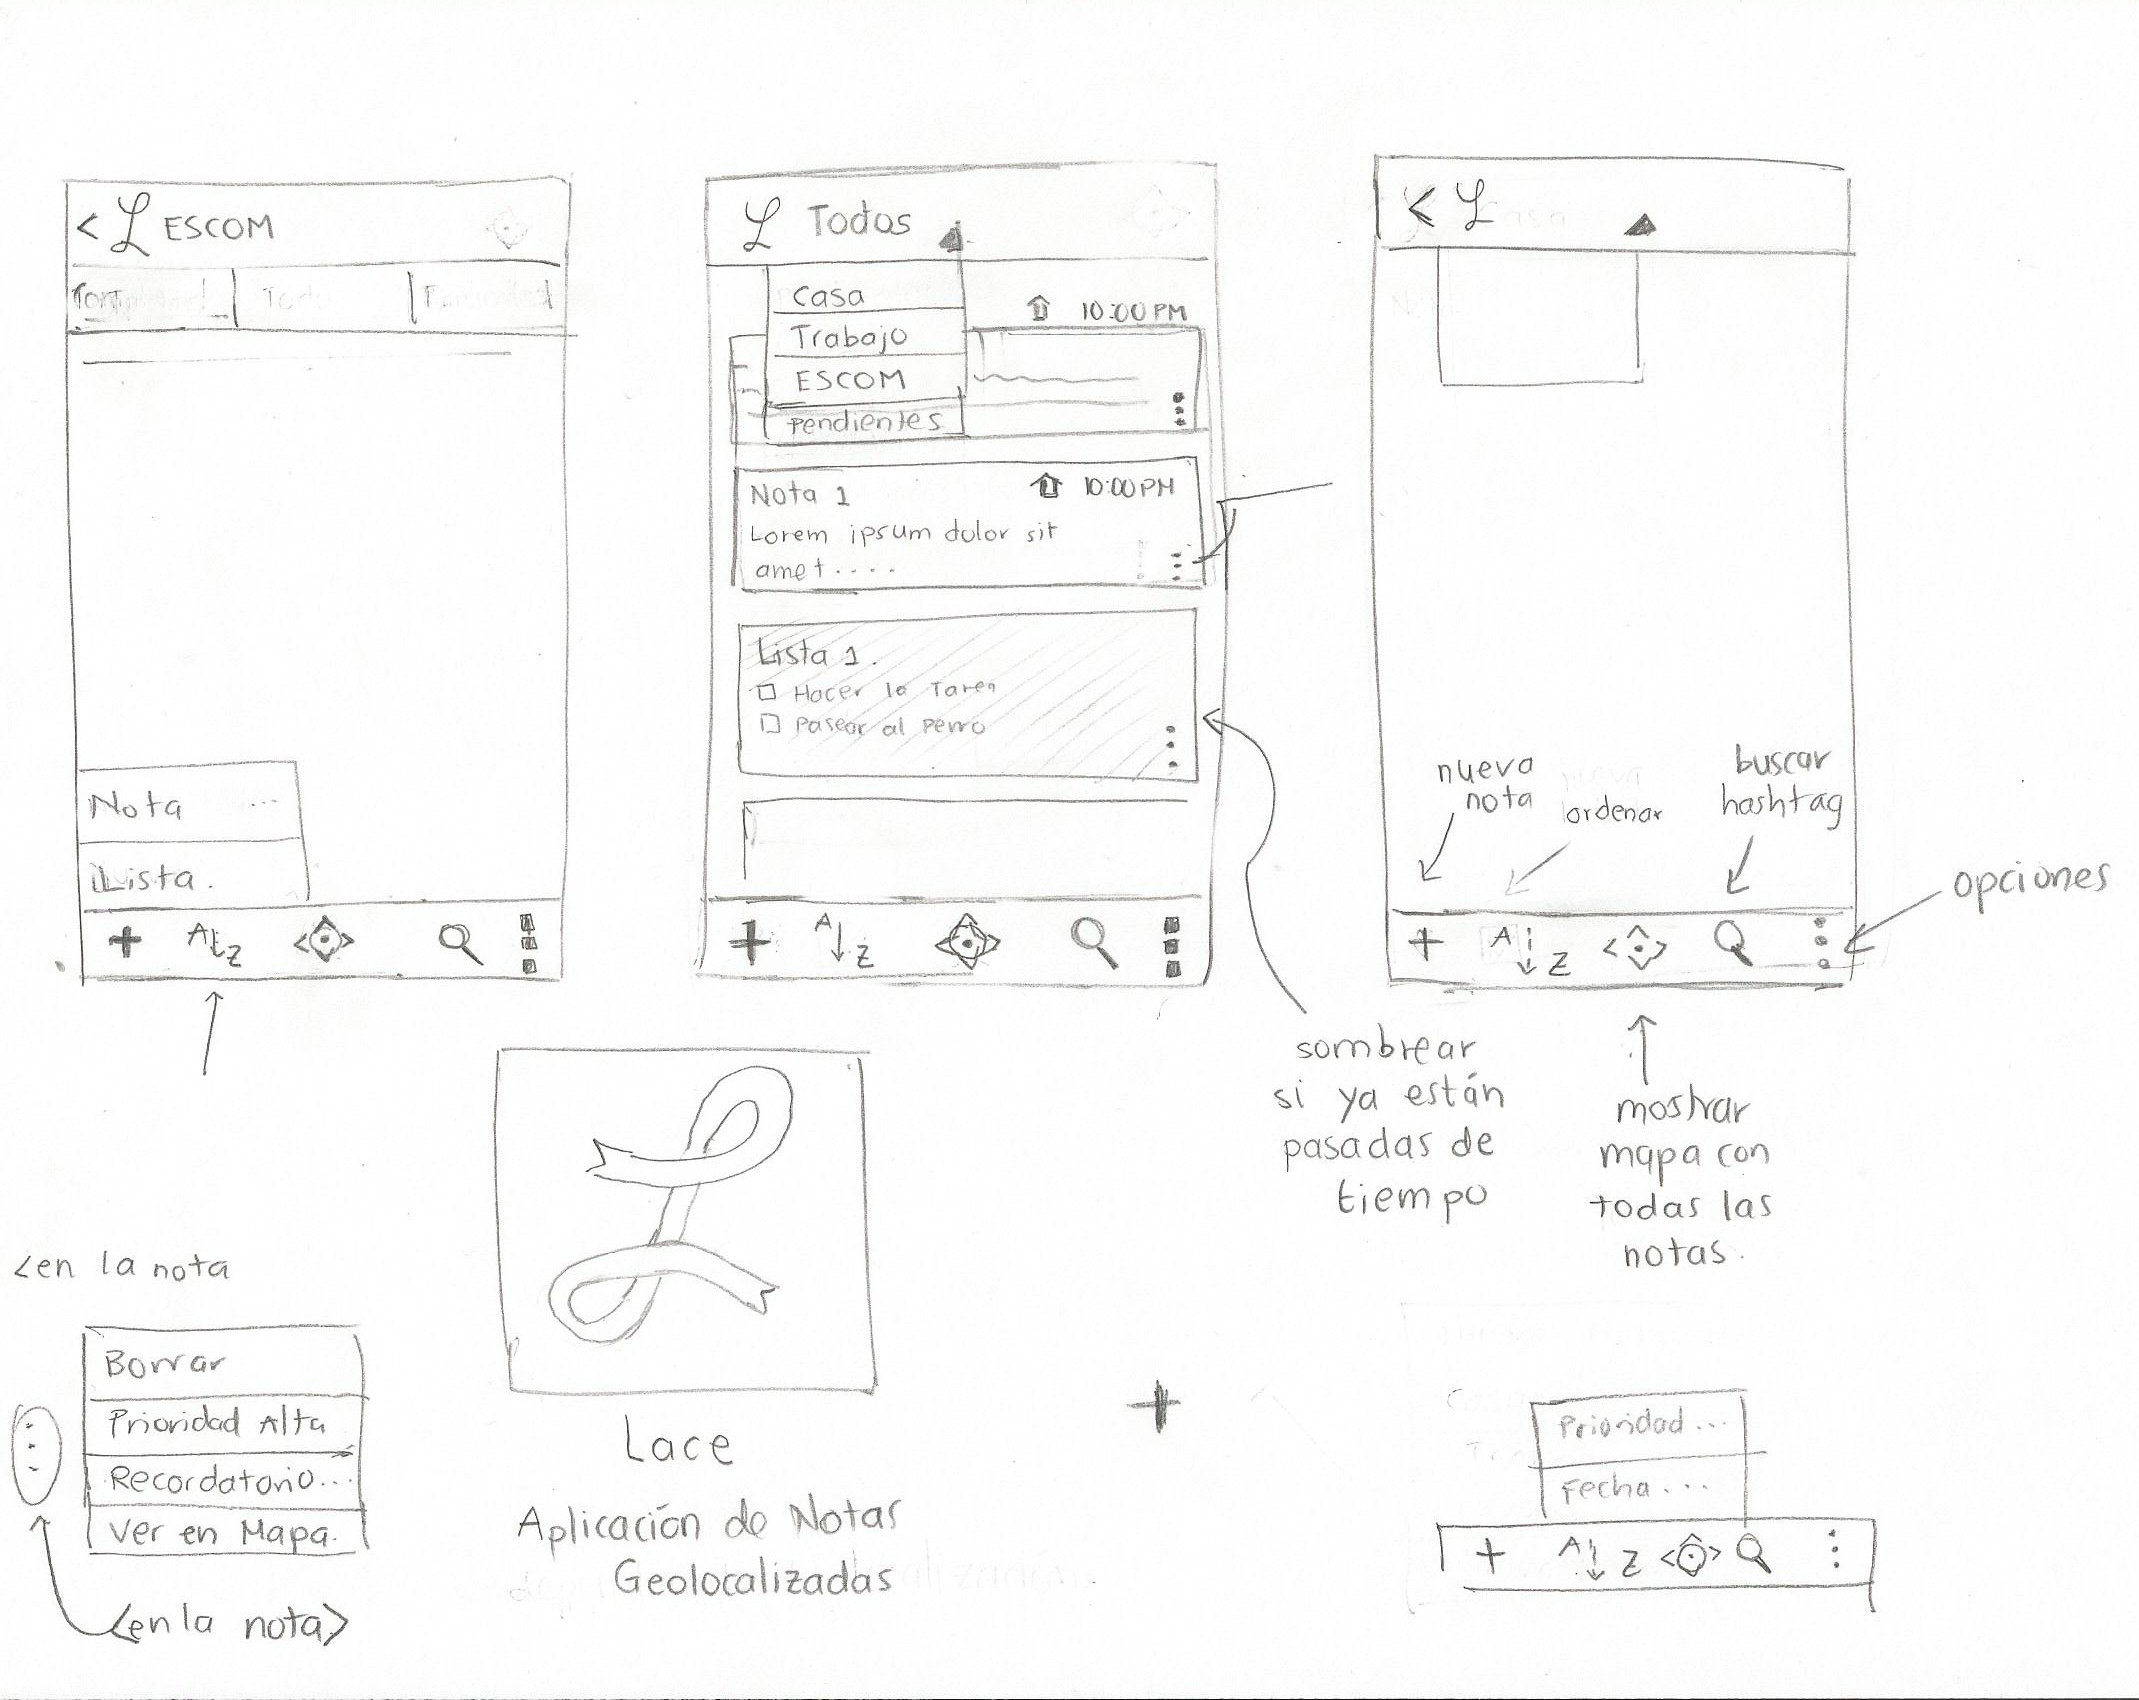 < L ESCOM
Nota ...
Lista.
A Z
L Todos
casa
Trabajo
ESCOM
pendientes
10:00 PM
Nota 1 10:00 PM
Lorem ipsum dolor sit
amet....
Lista 1.
Hacer la Tarea
Pasear al perro
A Z
< L
nueva
nota
ordenar
buscar
hashtag
opciones
A Z
sombrear
si ya están
pasadas de
tiempo
mostrar
mapa con
todas las
notas.
<en la nota
Borrar
Prioridad Alta
Recordatorio...
Ver en Mapa.
<en la nota>
Lace
Aplicación de Notas
Geolocalizadas
+
Prioridad...
Fecha...
A Z